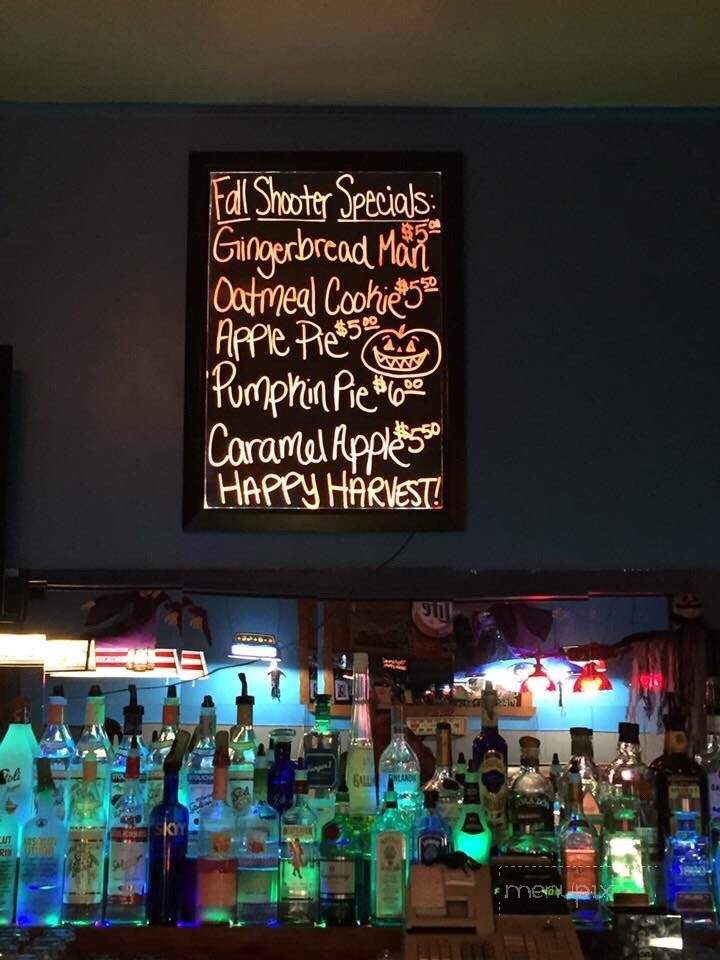 Fall Shooter Specials:
Gingerbread Man $5.00
Oatmeal Cookie $5.50
Apple Pie $5.00
Pumpkin Pie $6.00
Caramel Apple $5.50
HAPPY HARVEST!
Stoli
SKYY
FINLANDIA
menupix